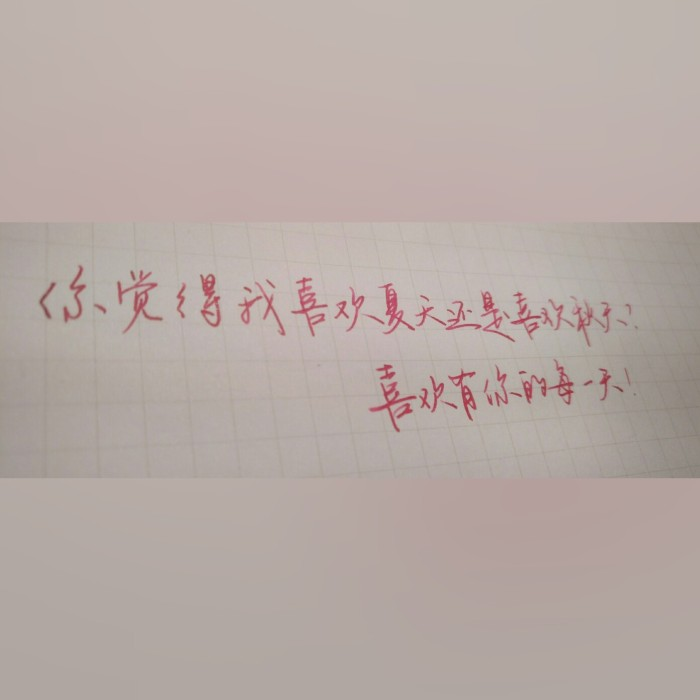 你觉得我喜欢夏天还是喜欢秋天?
喜欢有你的每一天!